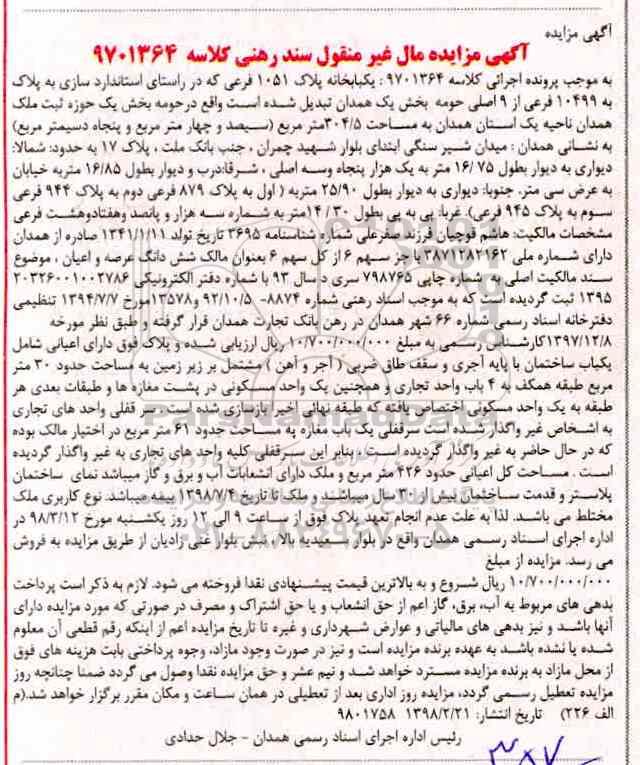 آگهی مزایده
آگهی مزایده مال غیر منقول سند رهنی کلاسه ۹۷۰۱۳۶۴
به موجب پرونده اجرائی کلاسه ۹۷۰۱۳۶۴ : یکبابخانه پلاک ۱۰۵۱ فرعی که در راستای استاندارد سازی به پلاک
به ۱۰۴۹۹ فرعی از ۹ اصلی حومه بخش یک همدان تبدیل شده است واقع درحومه بخش یک حوزه ثبت ملک
همدان ناحیه یک استان همدان به مساحت ۳۰۴/۵متر مربع (سیصد و چهار متر مربع و پنجاه دسیمتر مربع)
به نشانی همدان : میدان شیر سنگی ابتدای بلوار شهید چمران ، جنب بانک ملت ، پلاک ۱۷ به حدود: شمالا:
دیواری به دیوار بطول ۱۶/۷۵ متر به یک هزار پنجاه وسه اصلی ، شرقا:درب و دیوار بطول ۱۶/۸۵ متربه خیابان
به عرض سی متر. جنوبا: دیواری به دیوار بطول ۲۵/۹۰ متربه ( اول به پلاک ۸۷۹ فرعی دوم به پلاک ۹۴۴ فرعی
سوم به پلاک ۹۴۵ فرعی). غربا: پی به پی بطول ۱۴/۳۰متر به شماره سه هزار و پانصد وهفتادوهشت فرعی
مشخصات مالکیت: هاشم قوچیان فرزند صفرعلی شماره شناسنامه ۳۶۹۵ تاریخ تولد ۱۳۴۱/۱/۱۱ صادره از همدان
دارای شماره ملی ۳۸۷۱۲۸۲۱۶۲ با جز سهم ۶ از کل سهم ۶ بعنوان مالک شش دانگ عرصه و اعیان ، موضوع
سند مالکیت اصلی به شماره چاپی ۷۹۸۷۶۵ سری د سال ۹۳ با شماره دفتر الکترونیکی ۲۰۳۲۶۰۰۱۰۰۲۷۸۶
۱۳۹۵ ثبت گردیده است که به موجب اسناد رهنی شماره ۸۸۷۴- ۹۲/۱۰/۵ و۱۳۵۷۸مورخ ۱۳۹۴/۷/۷ تنظیمی
دفترخانه اسناد رسمی شماره ۶۶ شهر همدان در رهن بانک تجارت همدان قرار گرفته و طبق نظر مورخه
۱۳۹۷/۱۲/۸کارشناس رسمی به مبلغ ۱۰/۷۰۰/۰۰۰/۰۰۰ ریال ارزیابی شده و پلاک فوق دارای اعیانی شامل
یکباب ساختمان با پایه آجری و سقف طاق ضربی ( آجر و آهن ) مشتمل بر زیر زمین به مساحت حدود ۳۰ متر
مربع طبقه همکف به ۴ باب واحد تجاری و همچنین یک واحد مسکونی در پشت مغازه ها و طبقات بعدی هر
طبقه به یک واحد مسکونی اختصاص یافته که طبقه نهائی اخیرا بازسازی شده است. سر قفلی واحد های تجاری
به اشخاص غیر واگذار شده است سرقفلی یک باب مغازه به مساحت حدود ۶۱ متر مربع در اختیار مالک بوده
که در حال حاضر به غیر واگذار گردیده است . بنابر این سرقفلی کلیه واحد های تجاری به غیر واگذار گردیده
است . مساحت کل اعیانی حدود ۴۲۶ متر مربع و ملک دارای انشعابات آب و برق و گاز میباشد نمای ساختمان
پلاستر و قدمت ساختمان بیش از ۳۰ سال میباشد و ملک تا تاریخ ۱۳۹۸/۷/۴ بیمه میباشد. نوع کاربری ملک
مختلط می باشد. لذا به علت عدم انجام تعهد پلاک فوق از ساعت ۹ الی ۱۲ روز یکشنبه مورخ ۹۸/۳/۱۲ در
اداره اجرای اسناد رسمی همدان واقع در بلوار سعیدیه بالا، نبش بلوار غنی زادیان از طریق مزایده به فروش
می رسد. مزایده از مبلغ
۱۰/۷۰۰/۰۰۰/۰۰۰ ریال شروع و به بالاترین قیمت پیشنهادی نقدا فروخته می شود. لازم به ذکر است پرداخت
بدهی های مربوط به آب، برق، گاز اعم از حق انشعاب و یا حق اشتراک و مصرف در صورتی که مورد مزایده دارای
آنها باشد و نیز بدهی های مالیاتی و عوارض شهرداری و غیره تا تاریخ مزایده اعم از اینکه رقم قطعی آن معلوم
شده یا نشده باشد به عهده برنده مزایده است و نیز در صورت وجود مازاد، وجوه پرداختی بابت هزینه های فوق
از محل مازاد به برنده مزایده مسترد خواهد شد و نیم عشر و حق مزایده نقدا وصول می گردد ضمنا چنانچه روز
مزایده تعطیل رسمی گردد، مزایده روز اداری بعد از تعطیلی در همان ساعت و مکان مقرر برگزار خواهد شد.(م
الف ۲۲۶) تاریخ انتشار: ۱۳۹۸/۲/۲۱ ۹۸۰۱۷۵۸
رئیس اداره اجرای اسناد رسمی همدان - جلال حدادی